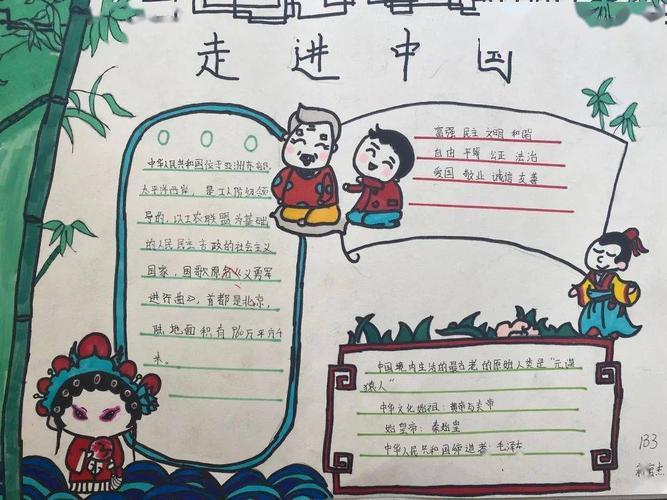 走进中国
中华人民共和国位于亚洲东部,
太平洋西岸,是工人阶级领
导的,以工农联盟为基础
的人民民主专政的社会主义
国家,国歌原名《义勇军
进行曲》,首都是北京,
陆地面积有960万平方千
米。
富强 民主 文明 和谐
自由 平等 公正 法治
爱国 敬业 诚信 友善
中国境内生活的最古老的原始人类是“元谋
猿人”
中华文化始祖:黄帝与炎帝
始皇帝:秦始皇
中华人民共和国缔造者:毛泽东
133